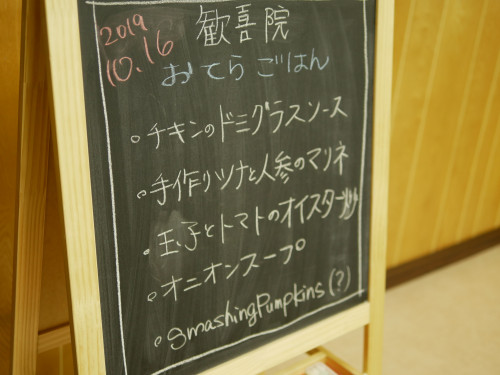 2019
10.16
歓喜院
おてらごはん
。チキンのドミグラスソース
。手作りツナと人参のマリネ
。玉子とトマトのオイスター炒
。オニオンスープ
。SmashingPumpkins(?)